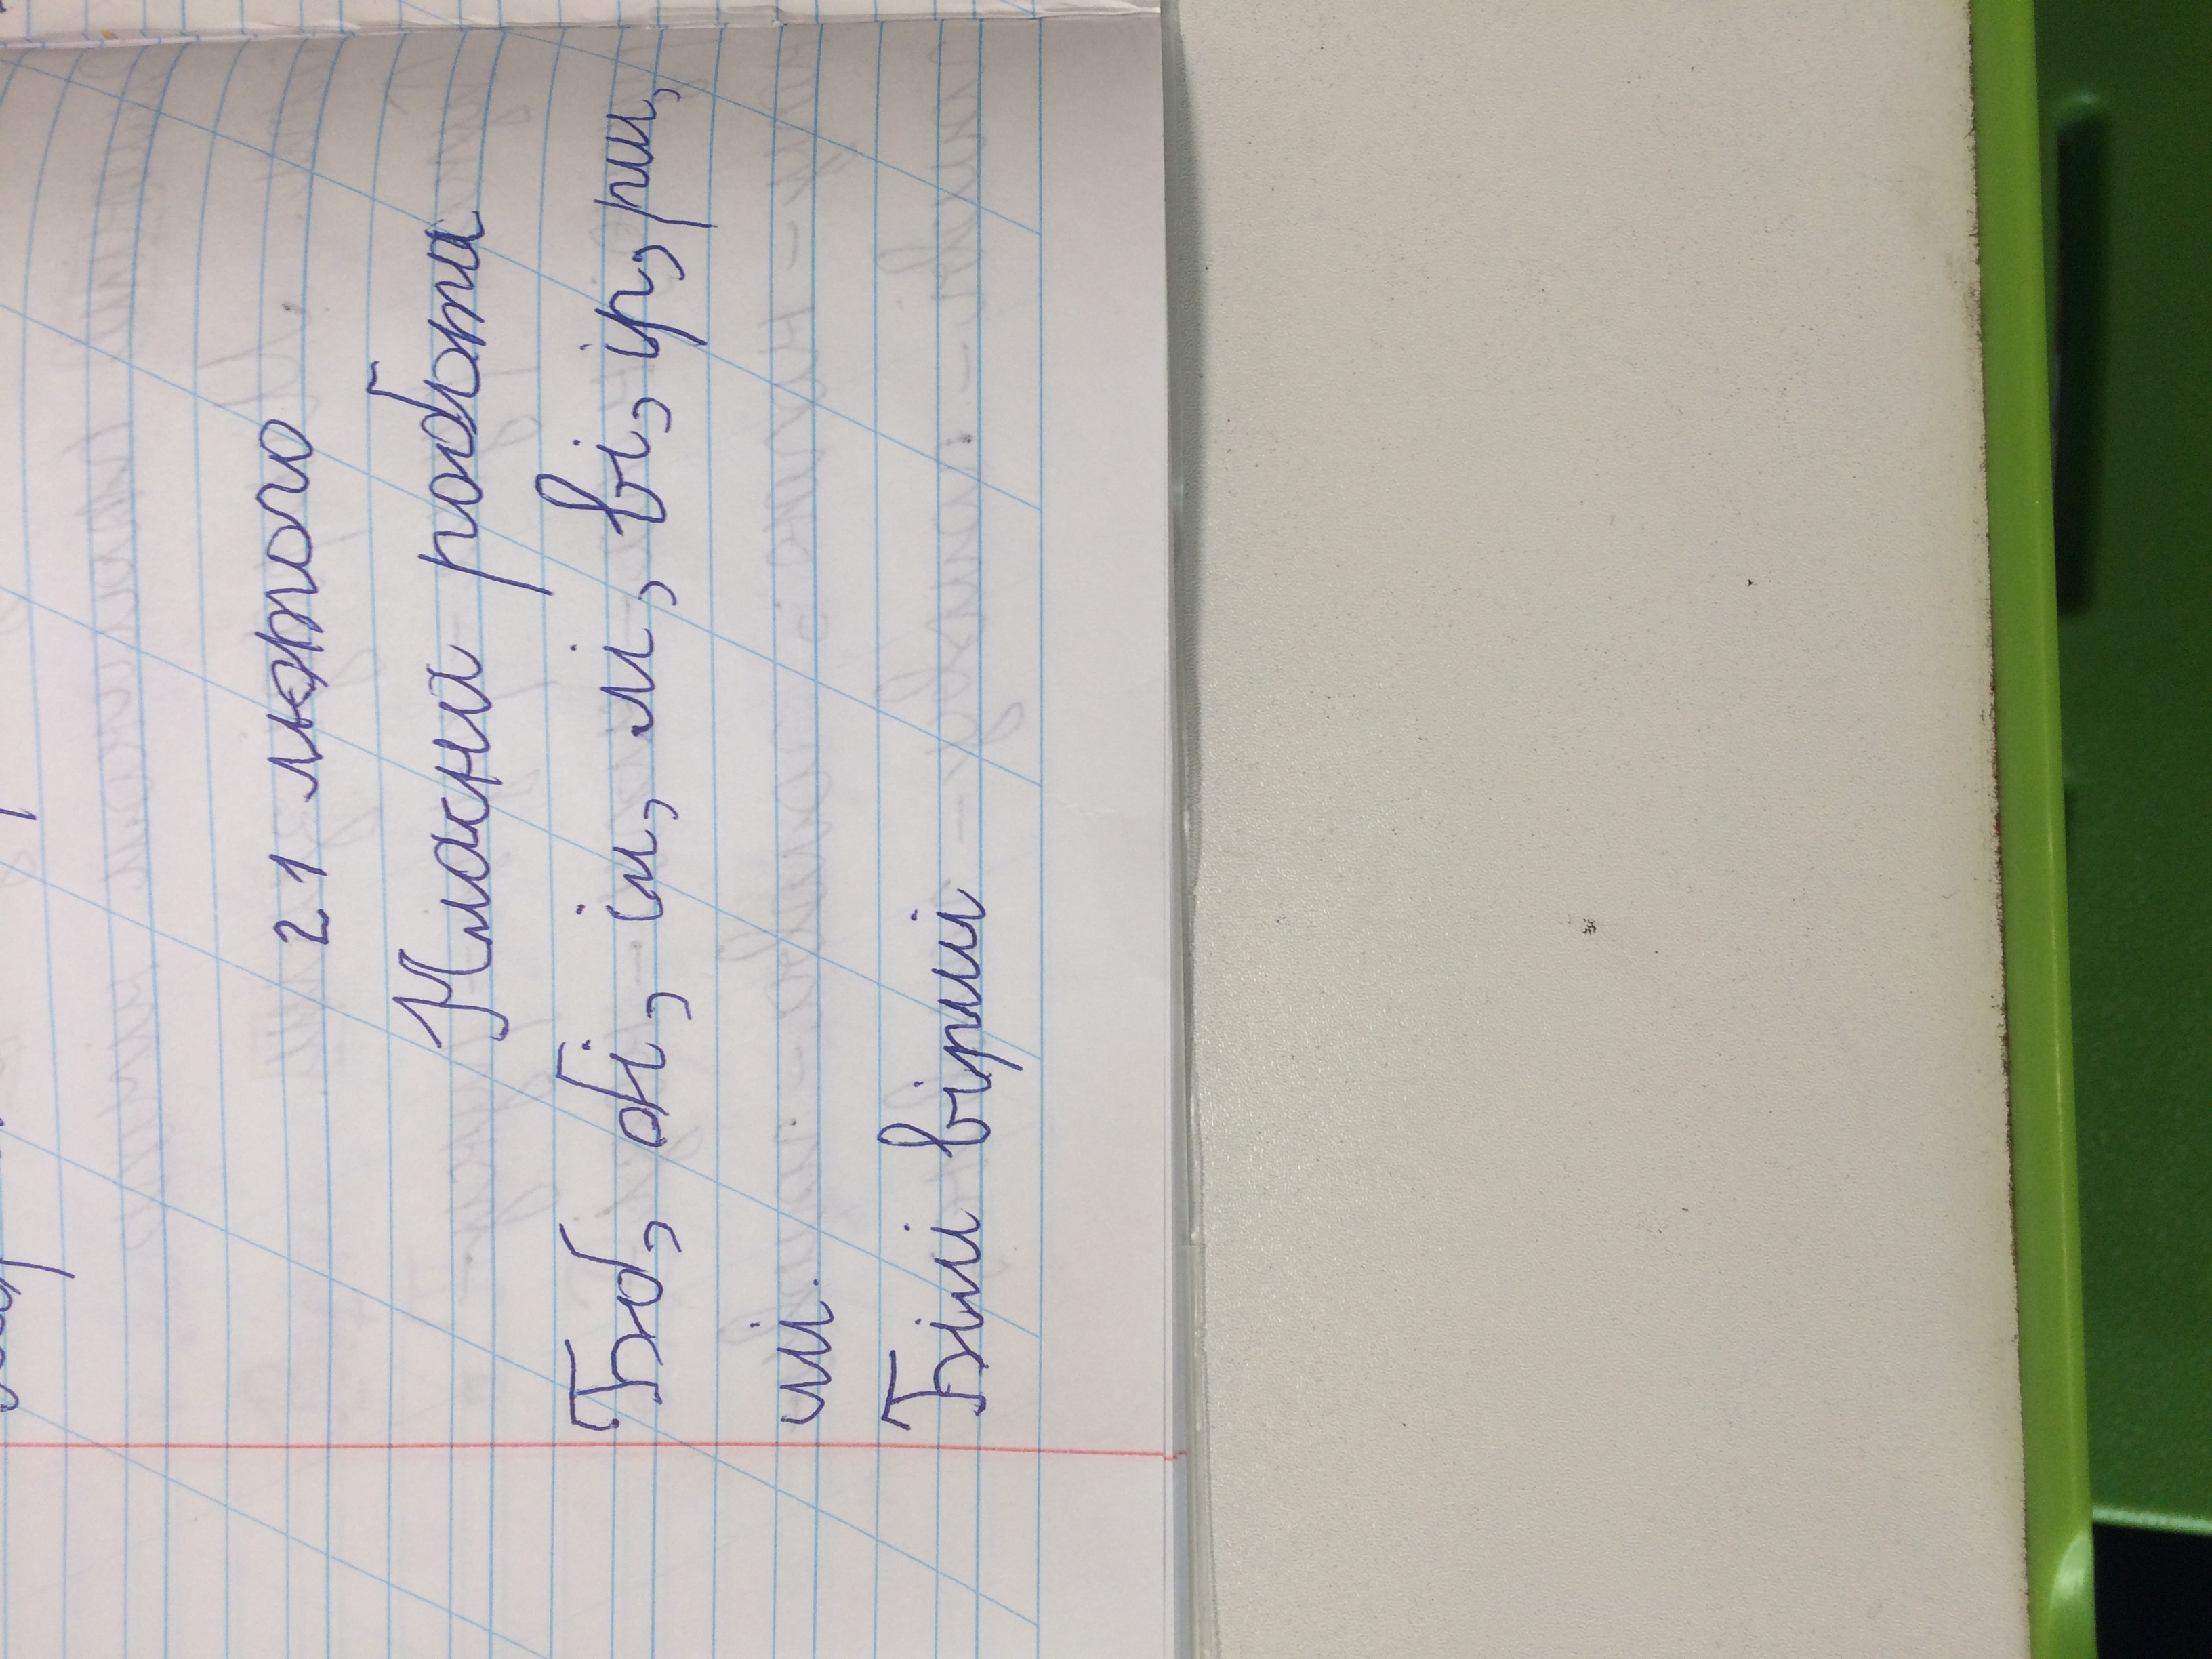 21 лютого
Класна робота
Бб, бі, іи, лі, ві, ір, ри,
иі.
Білі вірші